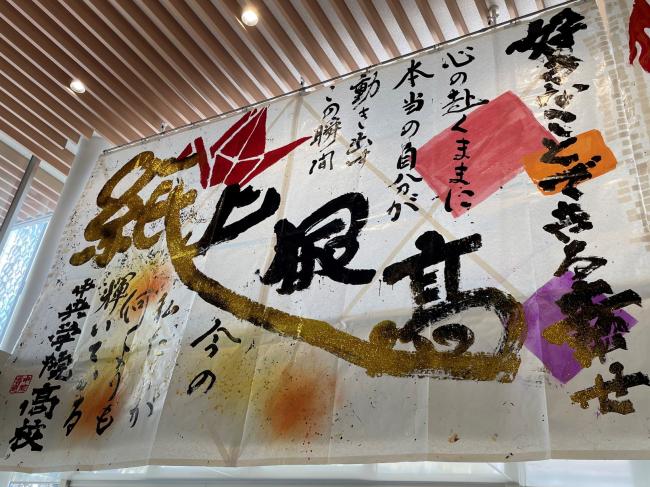 好きなことできる幸せ
心の赴くままに
本当の自分が
動き出す
この瞬間
紙上最高
今の
私たちが
何よりも
輝いている
中央学院高校